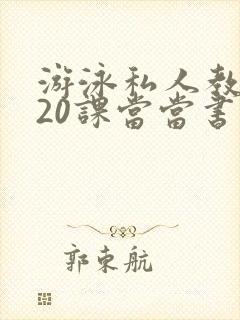 游泳私人教
20課當當書
郭東航